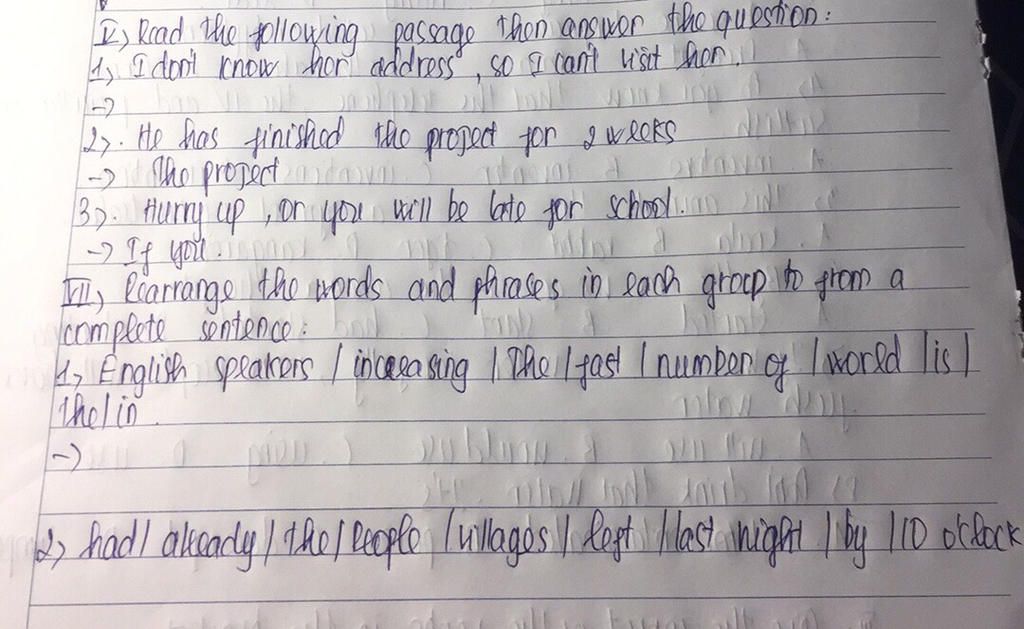 V, Read the following passage then answer the question:
1, I don't know her address, so I can't visit her.
->
2, He has finished the project for 2 weeks
-> The project
3, Hurry up, or you will be late for school.
-> If you.
VII, Rearrange the words and phrases in each group to from a
complete sentence:
1, English speakers / increasing / The / fast / number of / world / is /
the / in.
->
2, had / already / the / People / villages / left / last night / by / 10 o'clock